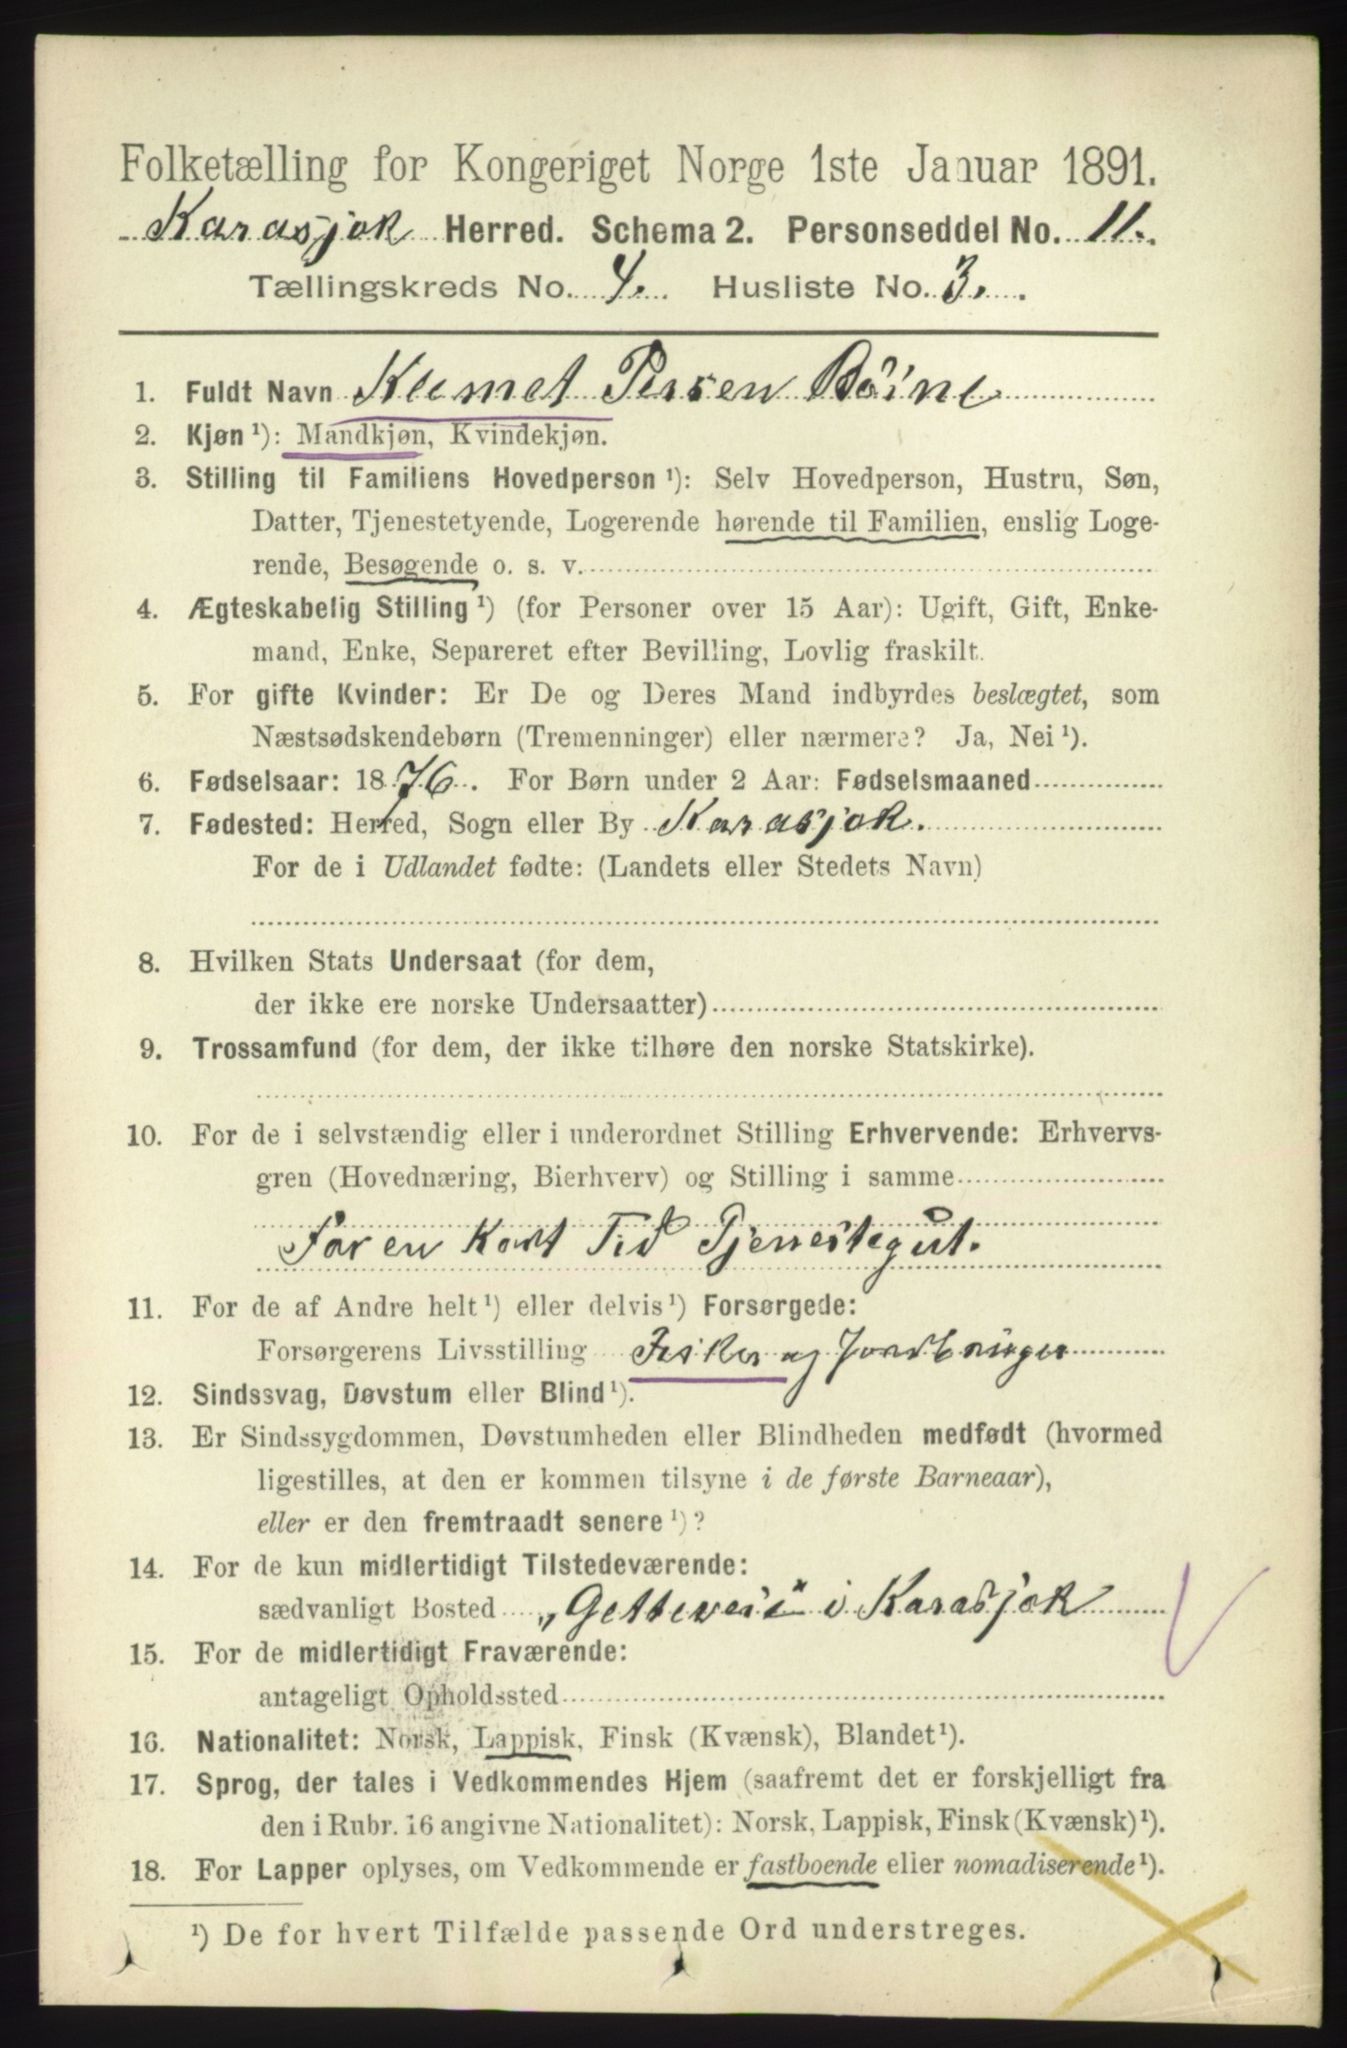 Folketælling for Kongeriget Norge 1ste Januar 1891.
Karasjok Herred. Schema 2. Personseddel No. 11.
Tællingskreds No. 4. Husliste No. 3.
1. Fuldt Navn Klemet Persen Boine
2. Kjøn ¹): Mandkjøn, Kvindekjøn.
3. Stilling til Familiens Hovedperson ¹): Selv Hovedperson, Hustru, Søn,
Datter, Tjenestetyende, Logerende hørende til Familien, enslig Loge-
rende, Besøgende o. s. v.
4. Ægteskabelig Stilling ¹) (for Personer over 15 Aar): Ugift, Gift, Enke-
mand, Enke, Separeret efter Bevilling, Lovlig fraskilt.
5. For gifte Kvinder: Er De og Deres Mand indbyrdes beslægtet, som
Næstsødskendebørn (Tremenninger) eller nærmere? Ja, Nei ¹).
6. Fødselsaar: 1876. For Børn under 2 Aar: Fødselsmaaned
7. Fødested: Herred, Sogn eller By Karasjok.
For de i Udlandet fødte: (Landets eller Stedets Navn)
8. Hvilken Stats Undersaat (for dem,
der ikke ere norske Undersaatter)
9. Trossamfund (for dem, der ikke tilhøre den norske Statskirke).
10. For de i selvstændig eller i underordnet Stilling Erhvervende: Erhvervs-
gren (Hovednæring, Bierhverv) og Stilling i samme
For en kort Tid Tjenestegut.
11. For de af Andre helt ¹) eller delvis ¹) Forsørgede:
Forsørgerens Livsstilling Fisker og Jordbruger
12. Sindssvag, Døvstum eller Blind ¹).
13. Er Sindssygdommen, Døvstumheden eller Blindheden medfødt (hvormed
ligestilles, at den er kommen tilsyne i de første Barneaar),
eller er den fremtraadt senere ¹)?
14. For de kun midlertidigt Tilstedeværende:
sædvanligt Bosted "Gettevei" i Karasjok
15. For de midlertidigt Fraværende:
antageligt Opholdssted
16. Nationalitet: Norsk, Lappisk, Finsk (Kvænsk), Blandet ¹).
17. Sprog, der tales i Vedkommendes Hjem (saafremt det er forskjelligt fra
den i Rubr. 16 angivne Nationalitet): Norsk, Lappisk, Finsk (Kvænsk) ¹).
18. For Lapper oplyses, om Vedkommende er fastboende eller nomadiserende ¹).
¹) De for hvert Tilfælde passende Ord understreges.